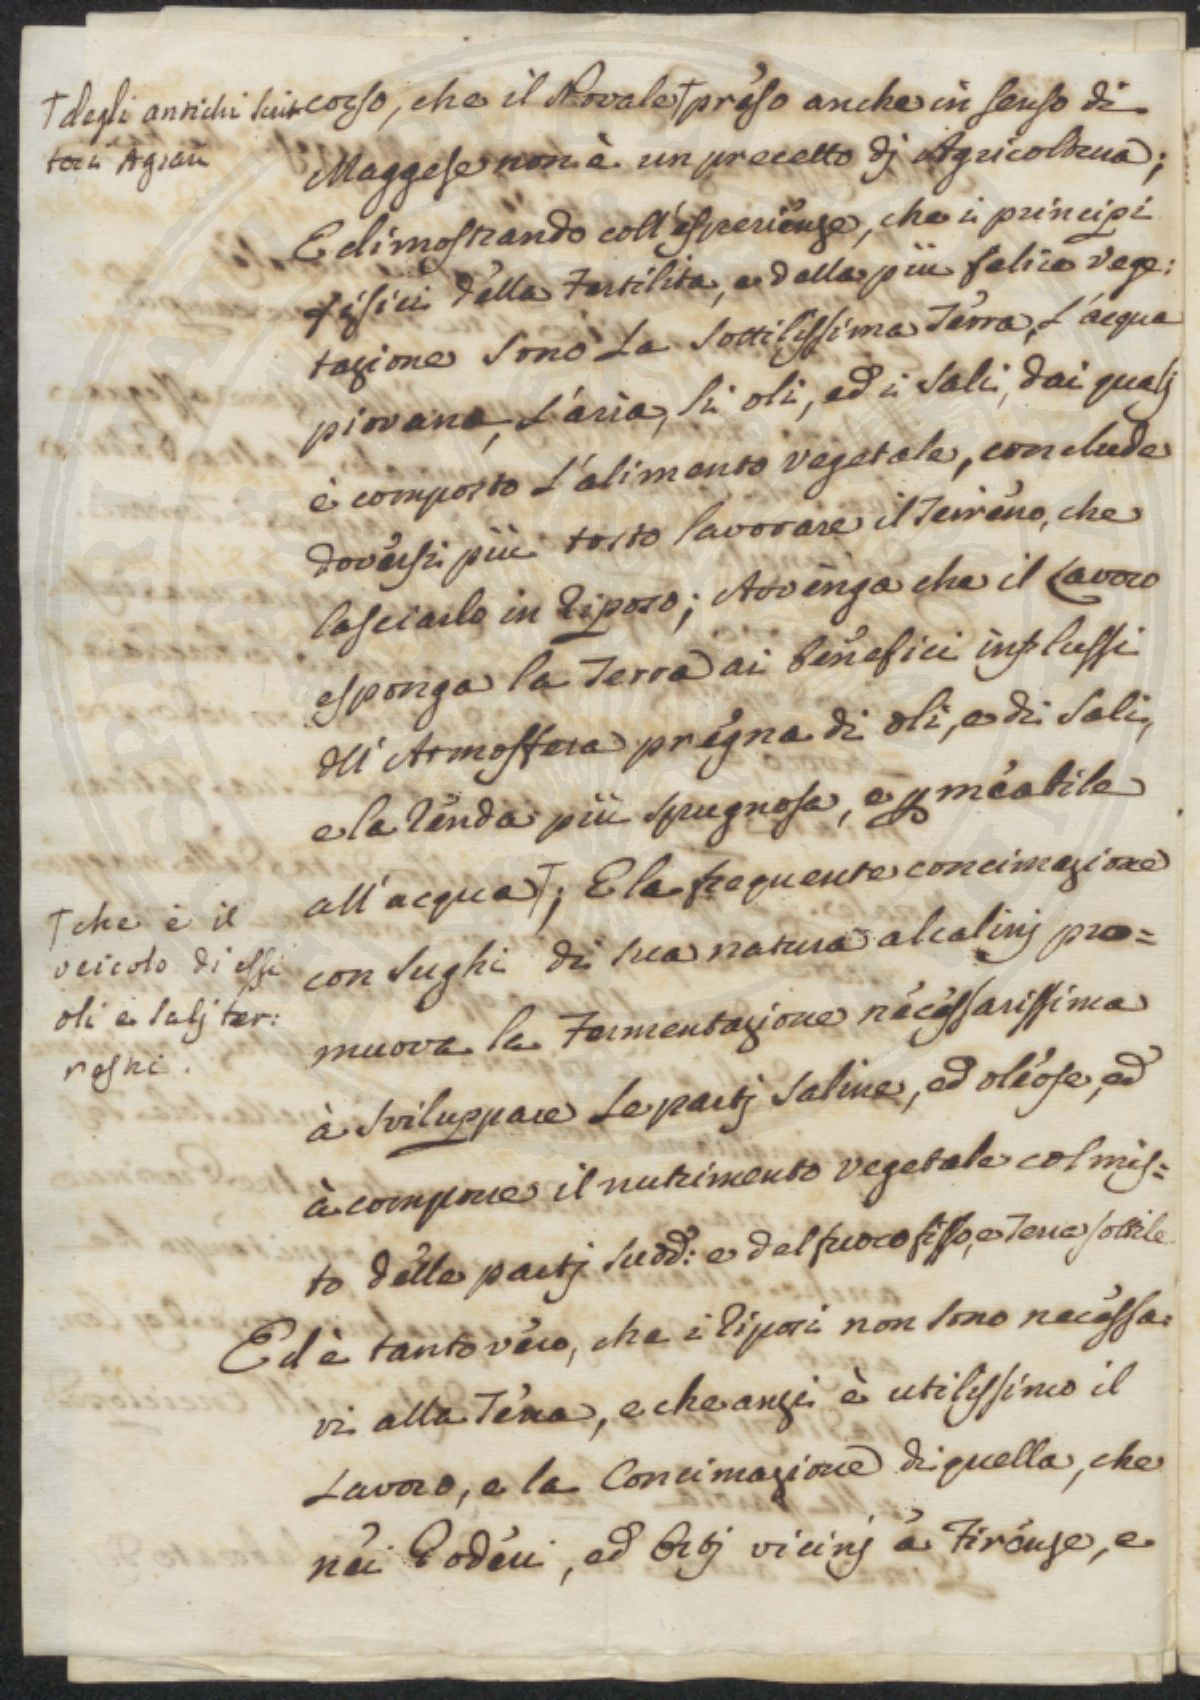 † degli antichi Scrit
tori Agrari
corso, che il Novale † preso anche in senso di
Maggese non è un precetto dj Agricoltura;
E dimostrando coll'esperienze, che i principi
fisici della Fertilità, e della più felice vege:
tazione sono La sottilissima Terra, L'acqua
piovana, L'aria, li oli, ed i Sali, dai qualj
è composto L'alimento vegetale, conclude
doversi più tosto lavorare il Terreno, che
lasciarlo in Riposo; Avvenga che il Lavoro
esponga la Terra ai benefici influssi
dll' Atmosfera pregna di oli, e di Sali,
e la renda più spugnosa, e pmeabile
all'acqua †; E la frequente concimazione
† che è il
veicolo di essi
oli e salj ter:
restri.
con sughi di sua natura alcalinj pro=
muova la Fermentazione necessarissima
à sviluppare Le partj saline, ed oleose, ed
à comporre il nutrimento vegetale col mis=
to delle partj sudd: e del fuoco fisso, e Terra sottile
Ed è tanto vero, che i riposi non sono necessa:
ri alla Terra, e che anzi è utilissimo il
Lavoro, e la Concimazione di quella, che
nei Poderi, ed Ortj vicinj a Firenze, e